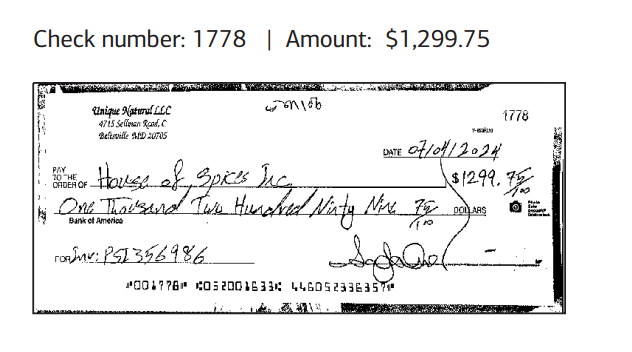 Check number: 1778 | Amount: $1,299.75
Unique Natural LLC
4715 Sellman Road, C
Beltsville MD 20705
1778
DATE 07/01/2024
PAY TO THE ORDER OF House of Spices Inc
$1299. 75/100
One Thousand Two Hundred Ninty Nine 75/100 DOLLARS
Bank of America
FOR Inv: PSI356986
⑈001778⑈ ⑆052001633⑆ 446052336357⑈